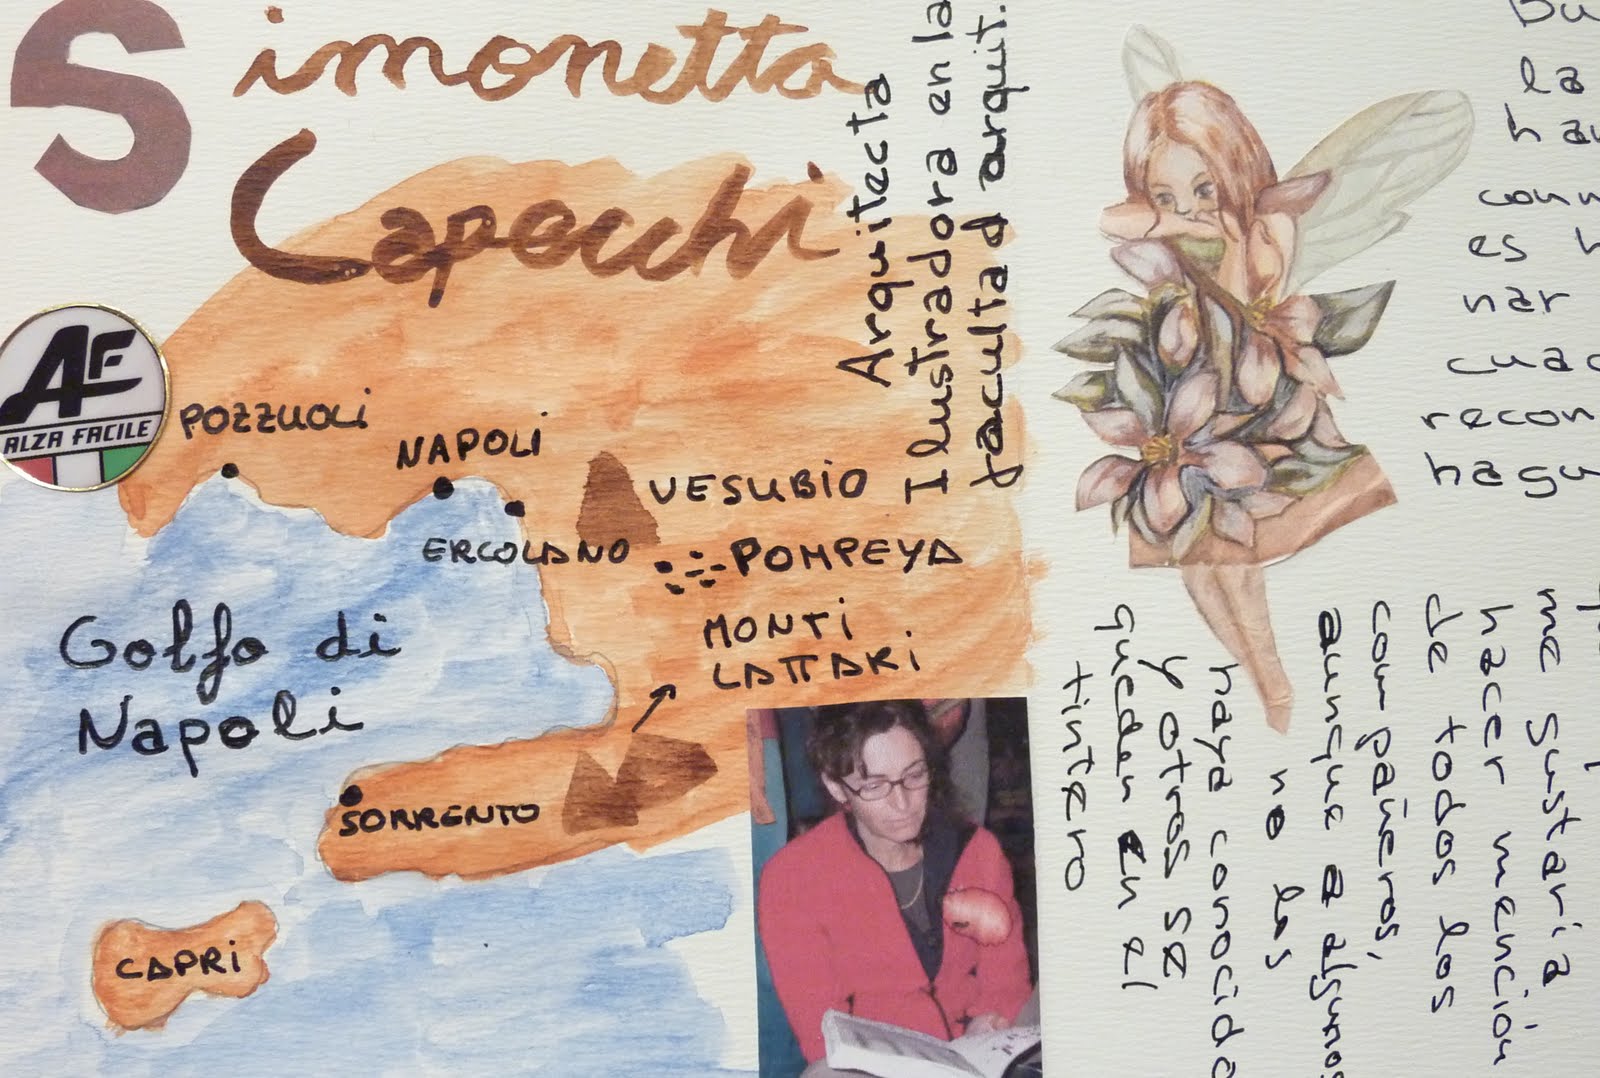 Simonetta
Capocchi
Arquitecta
Ilustradora en la
facultad arquit.
AF
ALZA FACILE
POZZUOLI
NAPOLI
VESUBIO
ERCOLANO
POMPEYA
MONTI
LATTARI
Golfo di
Napoli
SORRENTO
CAPRI
la
es h
nar
recon
hagu
me gustaría
hacer mención
de todos los
compañeros,
aunque a algunos
no los
haya conocido
y otros se
quedan en el
tintero